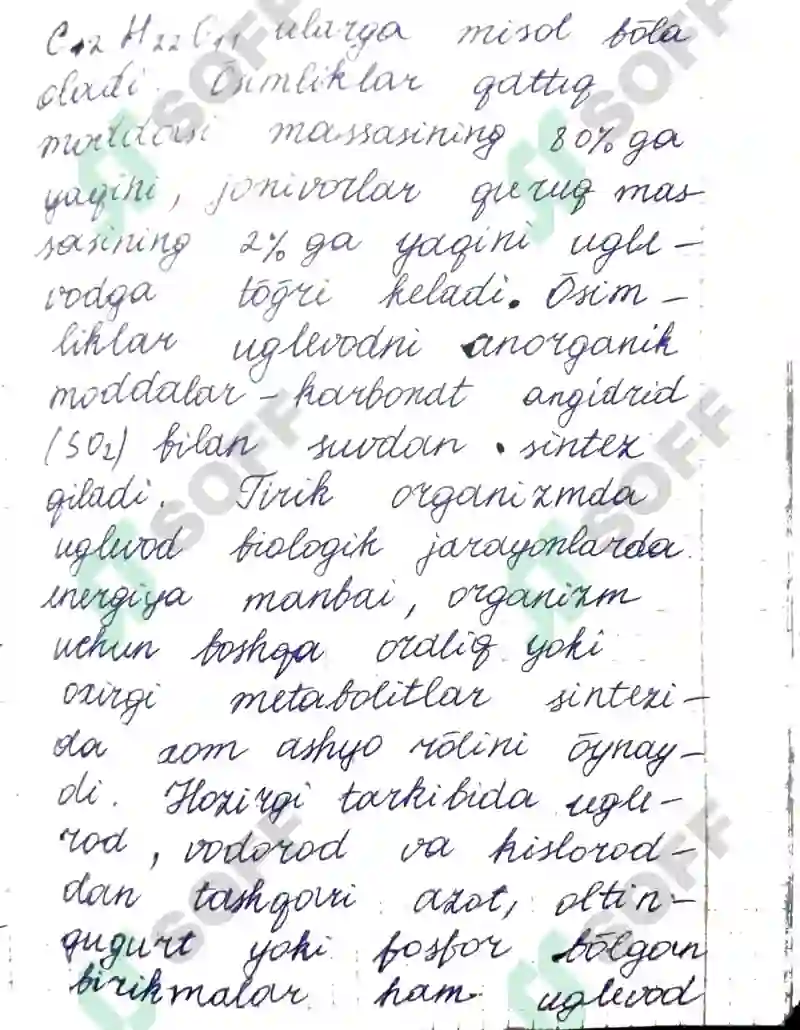 C₁₂H₂₂O₁₁ ularga misol bōla
oladi. Ōsimliklar qattiq
moddasi massasining 80% ga
yaqini, jonivorlar quruq mas-
sasining 2% ga yaqini ugle-
vodga tōg̃ri keladi. Ōsim-
liklar uglevodni anorganik
moddalar - karbonat angidrid
(SO₂) bilan suvdan sintez
qiladi. Tirik organizmda
uglevod biologik jarayonlarda
energiya manbai, organizm
uchun boshqa oraliq yoki
oxirgi metabolitlar sintezi-
da xom ashyo rōlini ōynay-
di. Hozirgi tarkibida ugle-
rod, vodorod va kislorod-
dan tashqari azot, oltin-
gugurt yoki fosfor bōlgan
birikmalar ham uglevod
SOFF
SOFF
SOFF
SOFF
SOFF
SOFF